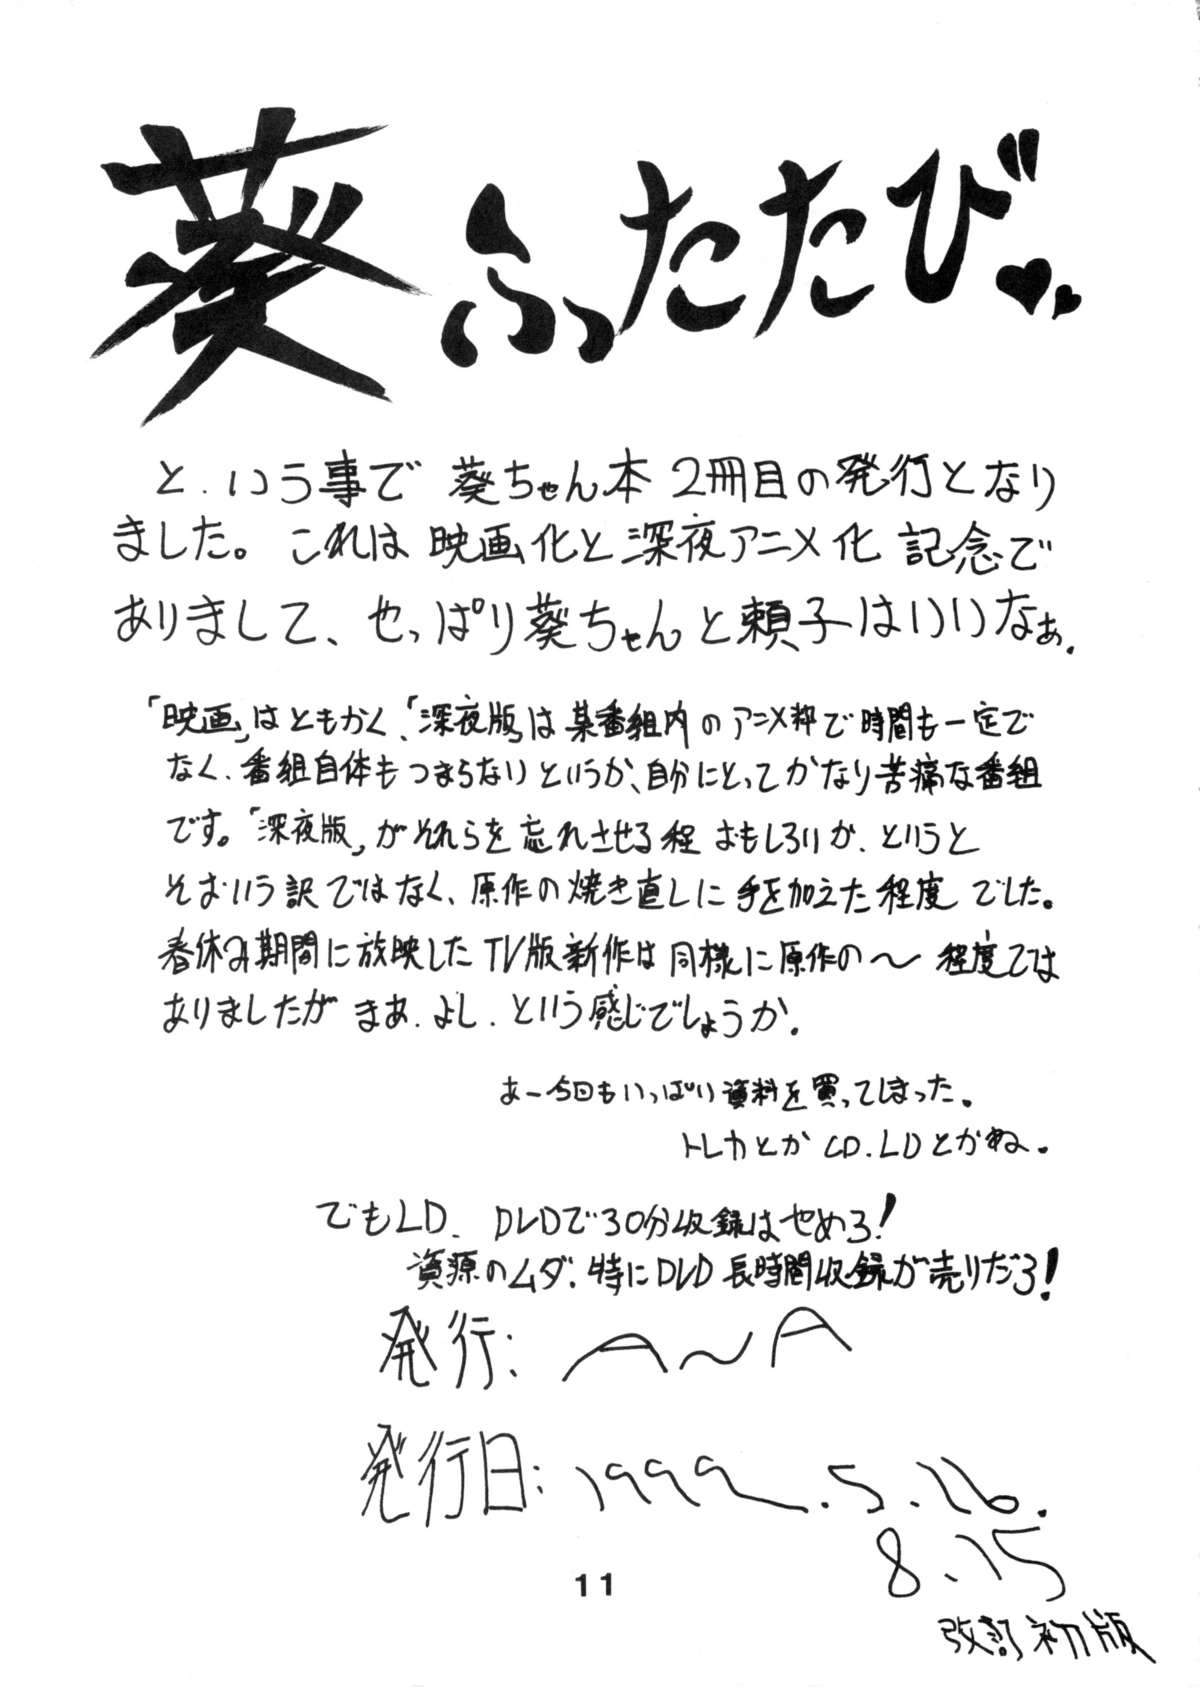 葵ふたたび♥♥
と．いう事で 葵ちゃん本 2冊目の発行となり
ました。これは 映画化と深夜アニメ化 記念で
ありまして、やっぱり葵ちゃんと頼子はいいなぁ．
「映画」はともかく、「深夜版」は某番組内のアニメ枠で時間も一定で
なく、番組自体もつまらないというか、自分にとってかなり苦痛な番組
です。「深夜版」がそれらを忘れさせる程おもしろいか、というと
そおいう訳ではなく、原作の焼き直しに手を加えた程度でした。
春休み期間に放映したTV版新作は同様に原作の〜程度では
ありましたが まあ．よし．という感じでしょうか．
あー今回もいっぱい資料を買ってしまった。
トレカとかCD．LDとかね．
でもLD．DVDで30分収録はやめろ！
資源のムダ．特にDVD長時間収録が売りだろ！
発行：A〜A
発行日：1999．5．16．
8．15
改訂初版
11